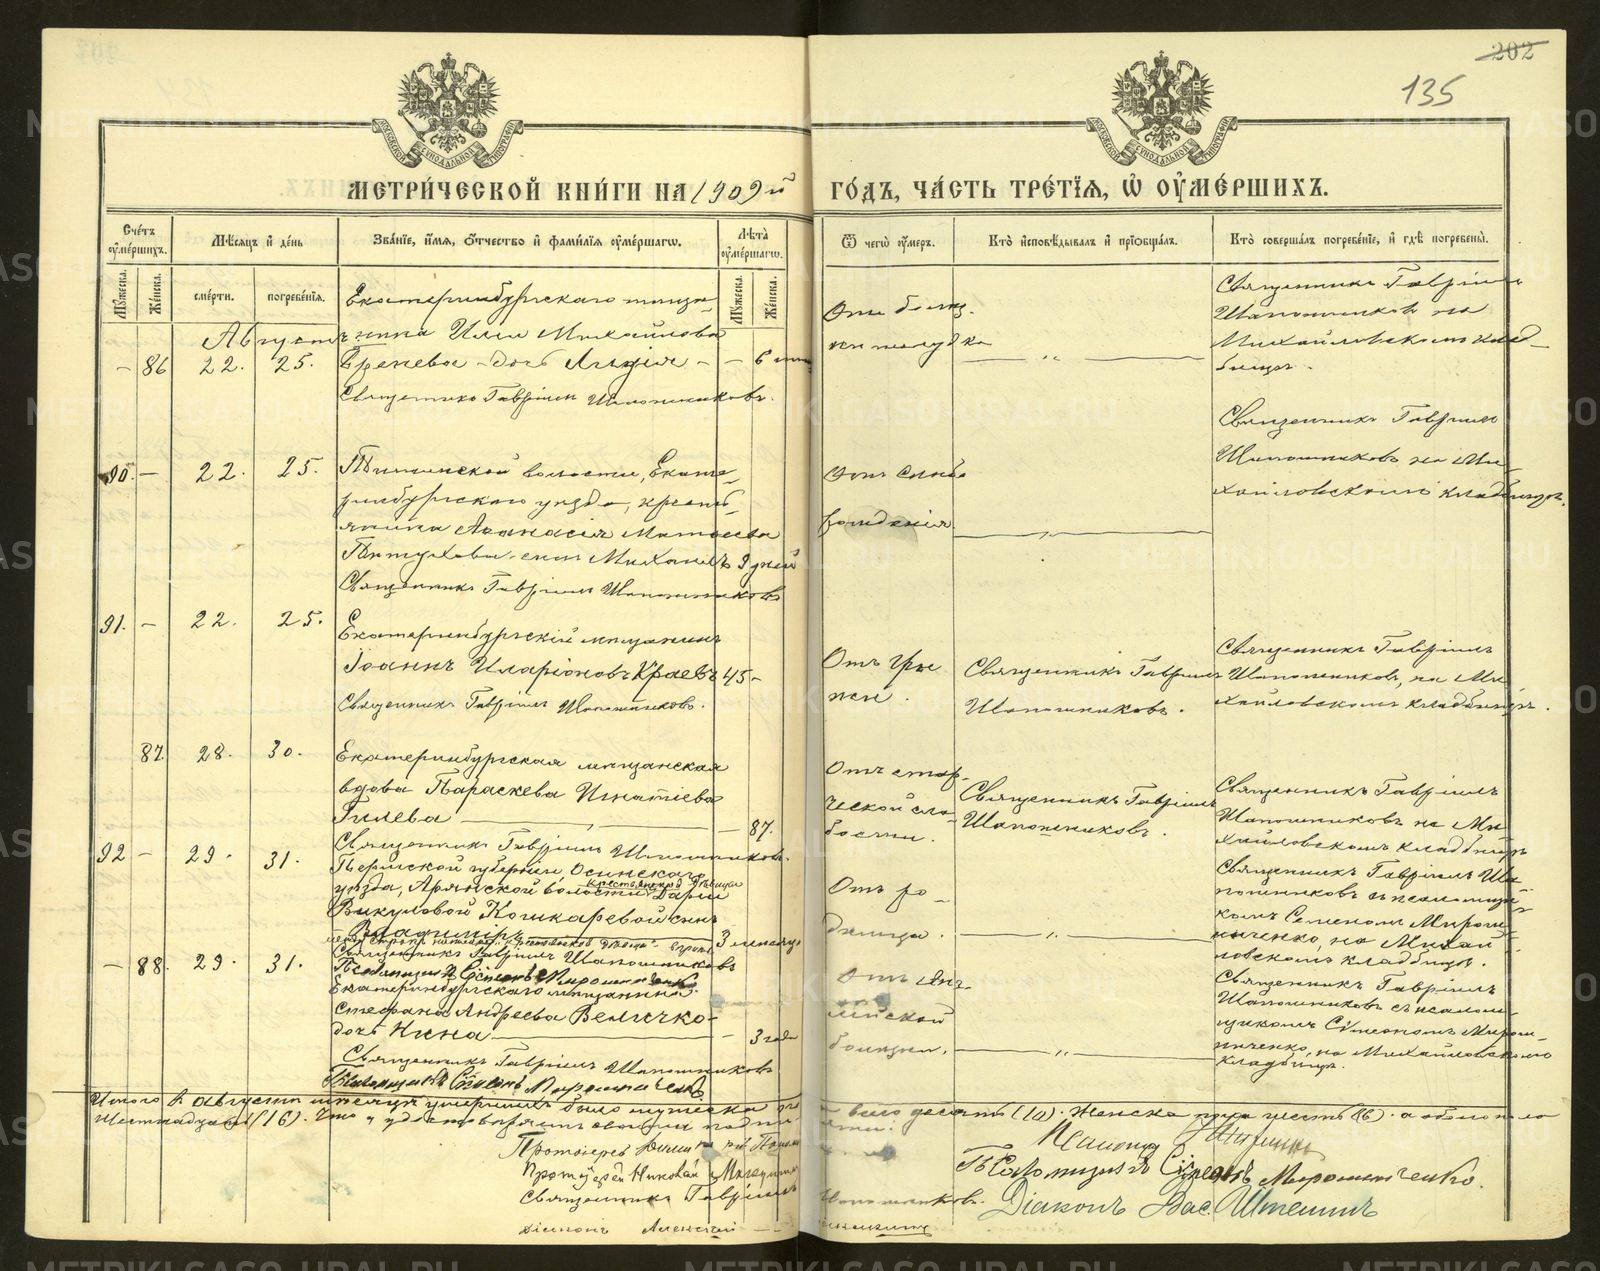 202
135
МЕТРИ́ЧЕСКОЙ КНИ́ГИ НА 1909й ГО́ДЪ, ЧА́СТЬ ТРЕ́ТІѦ, Ѡ҆ ОУ҆МЕ́РШИХЪ.
Сче́тъ оу҆ме́ршихъ.
Мѣ́сѧцъ и҆ де́нь
Зва́нїе, и҆́мѧ, ѻ҆́тчество и҆ фами́лїѧ оу҆ме́ршагѡ.
Лѣ́та оу҆ме́ршагѡ.
Ѿ чегѡ̀ оу҆́меръ.
Кто̀ и҆сповѣ́дывалъ и҆ прїѡбща́лъ.
Кто̀ соверша́лъ погребе́нїе, и҆ гдѣ̀ погребены̀.
Мꙋ́жеска.
Же́нска.
сме́рти.
погребе́нїѧ.
Мꙋ́жеска.
Же́нска.
Августъ
Екатеринбургскаго мѣща-
нина Иліи Михайлова
– 86 22. 25.
дочь Лидія – –
Священникъ Гавріилъ Шапошниковъ.
От болез.
ни желудка
Священникъ Гавріилъ
Шапошниковъ на
Михайловскомъ клад-
бищѣ.
90. – 22. 25.
волости, Екате-
ринбургскаго уѣзда, кресть-
янина Аѳанасія Матѳеева
Пѣтухова сынъ Михаилъ 9 дней
Священникъ Гавріилъ Шапошниковъ
Отъ слабо
рожденія
Священникъ Гавріилъ
Шапошниковъ на Ми-
хайловскомъ кладбищѣ.
91. – 22. 25.
Екатеринбургскій мѣщанинъ
Іоаннъ Иларіоновъ Краевъ 45 –
Священникъ Гавріилъ Шапошниковъ.
Отъ гры
жи.
Священникъ Гавріилъ
Шапошниковъ.
Священникъ Гавріилъ
Шапошниковъ, на Ми-
хайловскомъ кладбищѣ.
87. 28. 30.
Екатеринбургская мѣщанская
вдова Параскева Игнатіева
Гилева – 87.
Священникъ Гавріилъ Шапошниковъ.
Отъ стар-
ческой сла-
бости.
Священникъ Гавріилъ
Шапошниковъ.
Священникъ Гавріилъ
Шапошниковъ на Ми-
хайловскомъ кладбищѣ
92 – 29. 31.
Пермской губерніи, Осинскаго
уѣзда, Аряжской волости крестьянской дѣвицы Даріи
Викуловой Кошкаревой сынъ
Владиміръ 3 месяца
Священникъ Гавріилъ Шапошниковъ
Псаломщикъ Сѵмеонъ Мирошниченко
Отъ ро-
димца.
Священникъ Гавріилъ Ша-
пошниковъ съ псаломщи-
комъ Семеномъ Мирош-
ниченко, на Михай-
ловскомъ кладбищѣ.
– 88. 29. 31.
Екатеринбургскаго мѣщанина
Стефана Андреева Величко-
дочь Нина – 3 года
Священникъ Гавріилъ Шапошниковъ
Псаломщикъ Сѵмеонъ Мирошниченко
Отъ Анг-
лійской
болѣзни.
Священникъ Гавріилъ
Шапошниковъ съ псалом-
щикомъ Сѵмеономъ Мирош-
ниченко, на Михайловскомъ
кладбищѣ.
Итого въ Августѣ мѣсяцѣ умершихъ было мужеска
было десять (10). Женска пола шесть (6). а обоего пола
Шестнадцать (16). Что и удостовѣряемъ своимъ подпи
Протоіерей
Протоіерей Николай
Священникъ Гавріилъ Шапошниковъ.
Діаконъ Алексій
Псаломщикъ Сѵмеонъ Мирошниченко.
Діаконъ Вас. Штешинъ